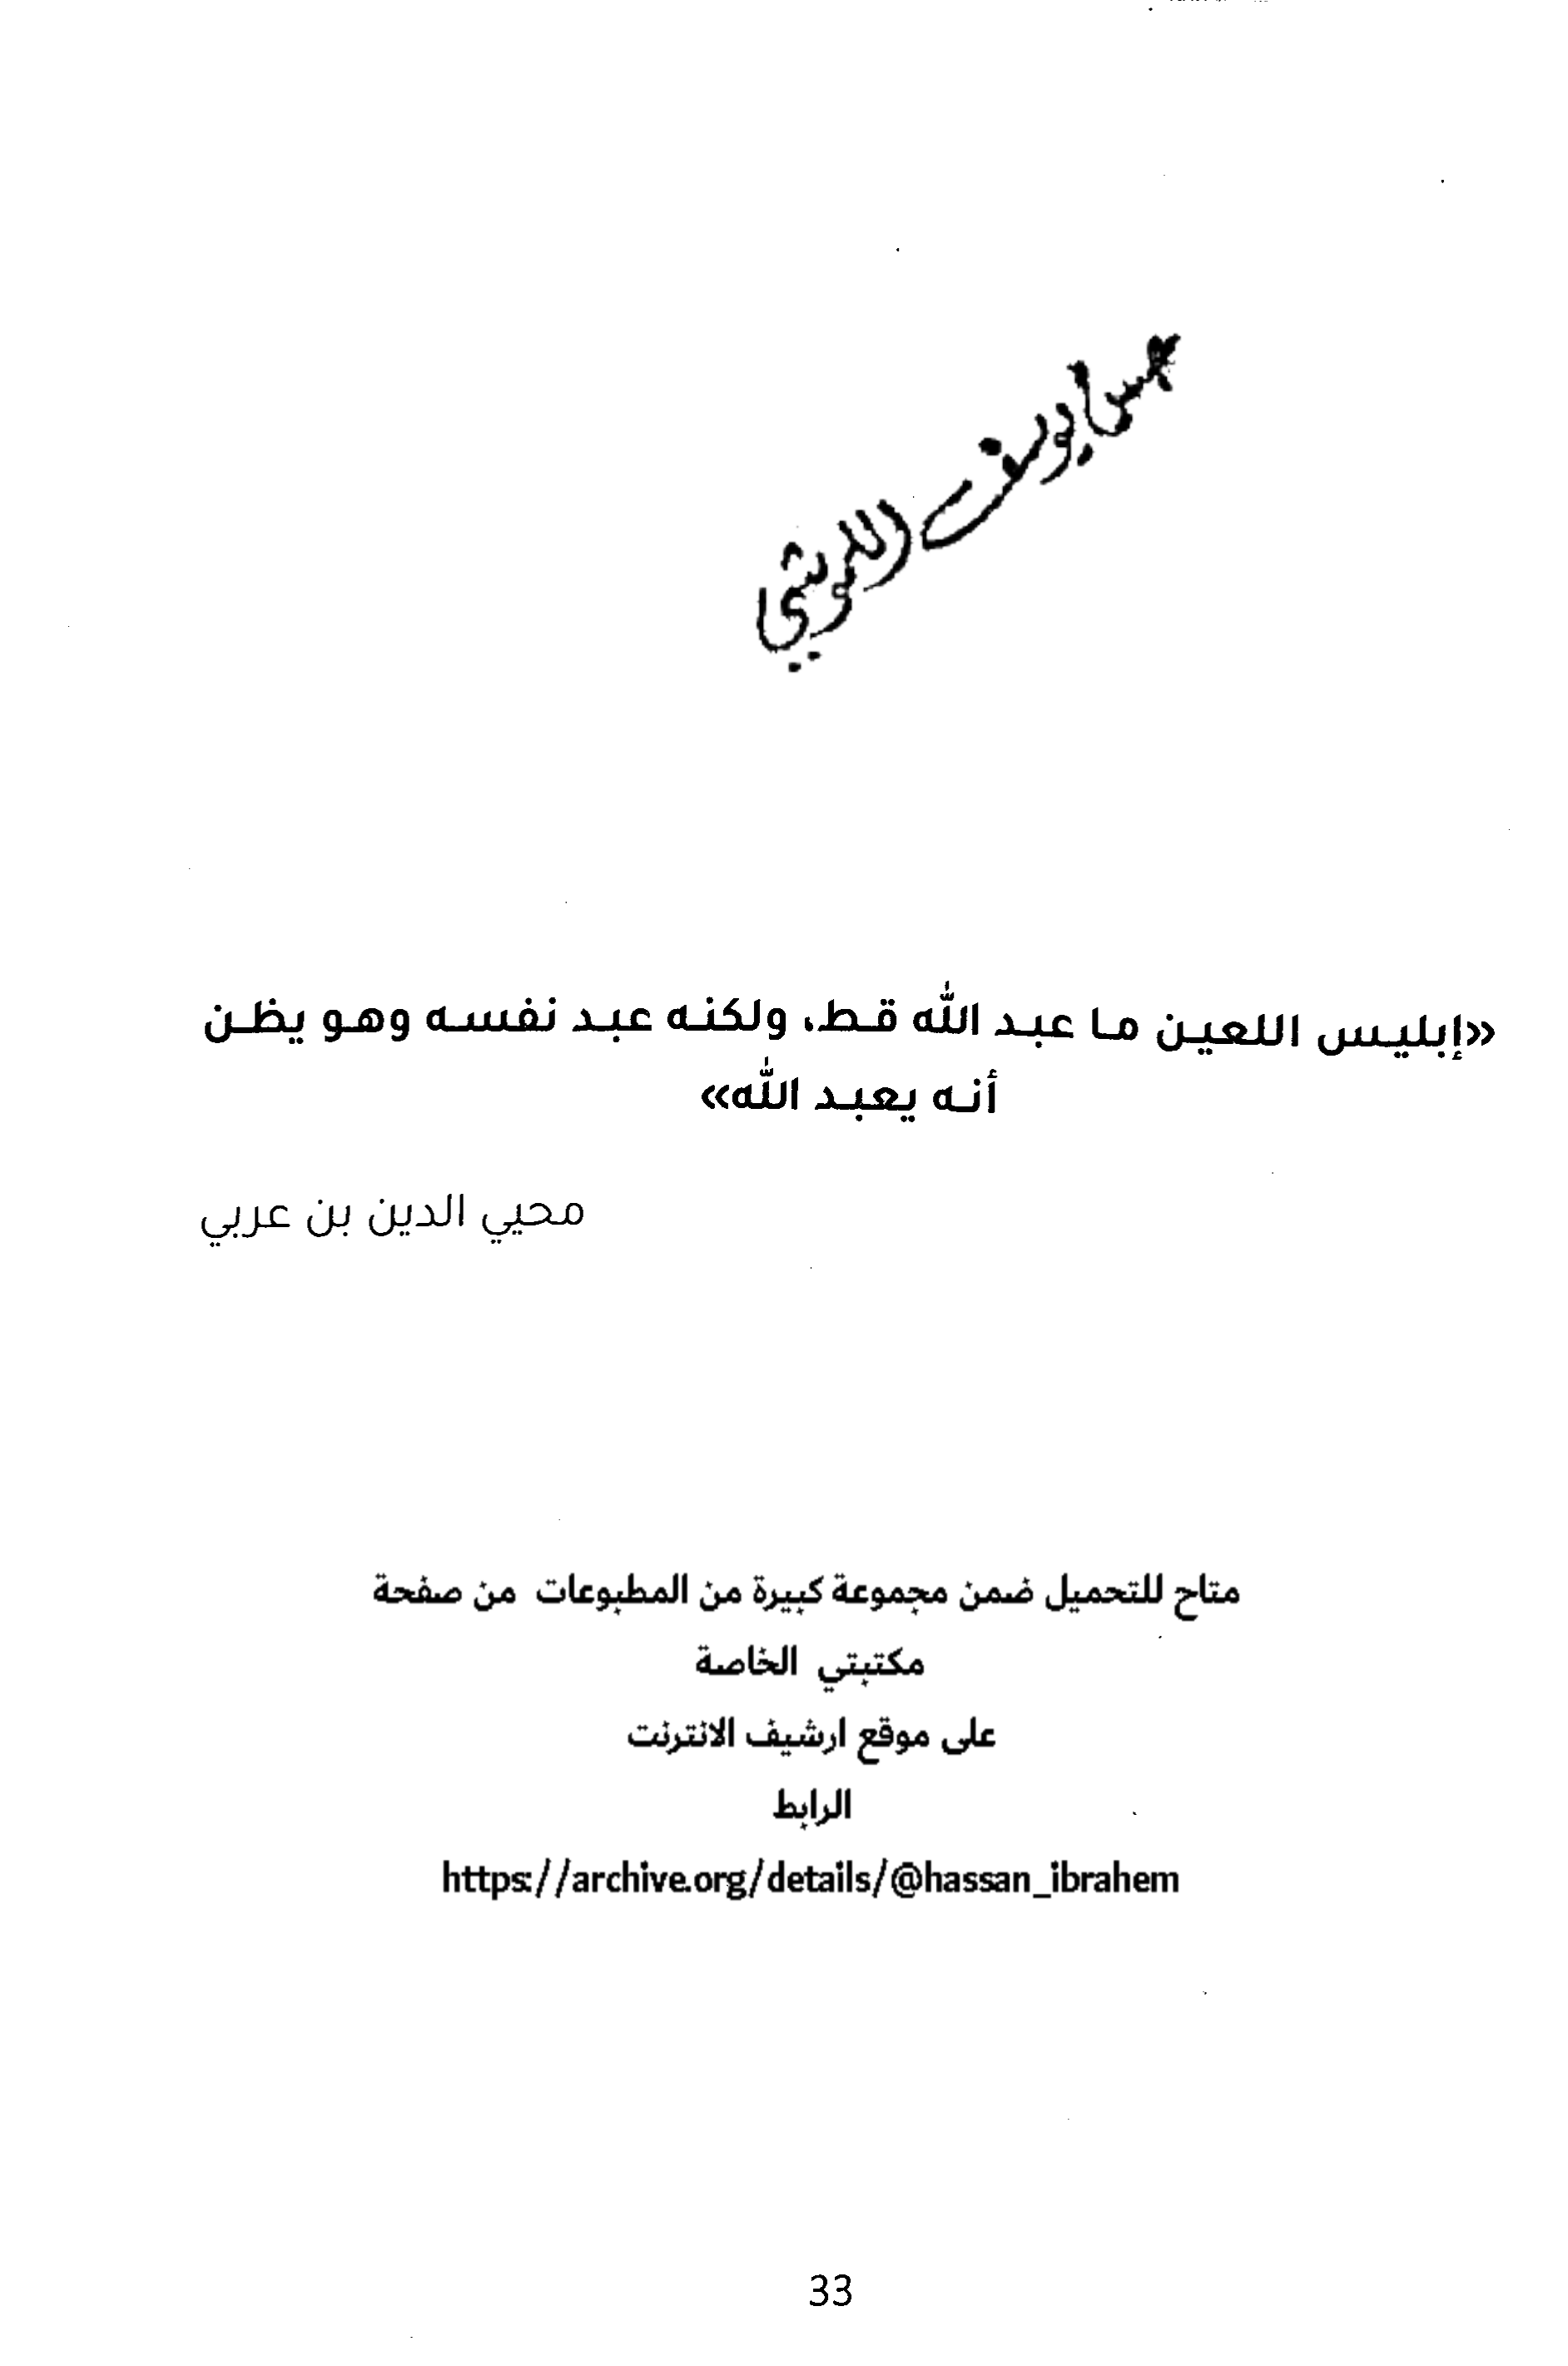 «إبليس اللعين ما عبد الله قط، ولكنه عبد نفسه وهو يظن
أنه يعبد الله»
محيي الدين بن عربي
متاح للتحميل ضمن مجموعة كبيرة من المطبوعات من صفحة
مكتبتي الخاصة
على موقع ارشيف الانترنت
الرابط
https://archive.org/details/@hassan_ibrahem
33